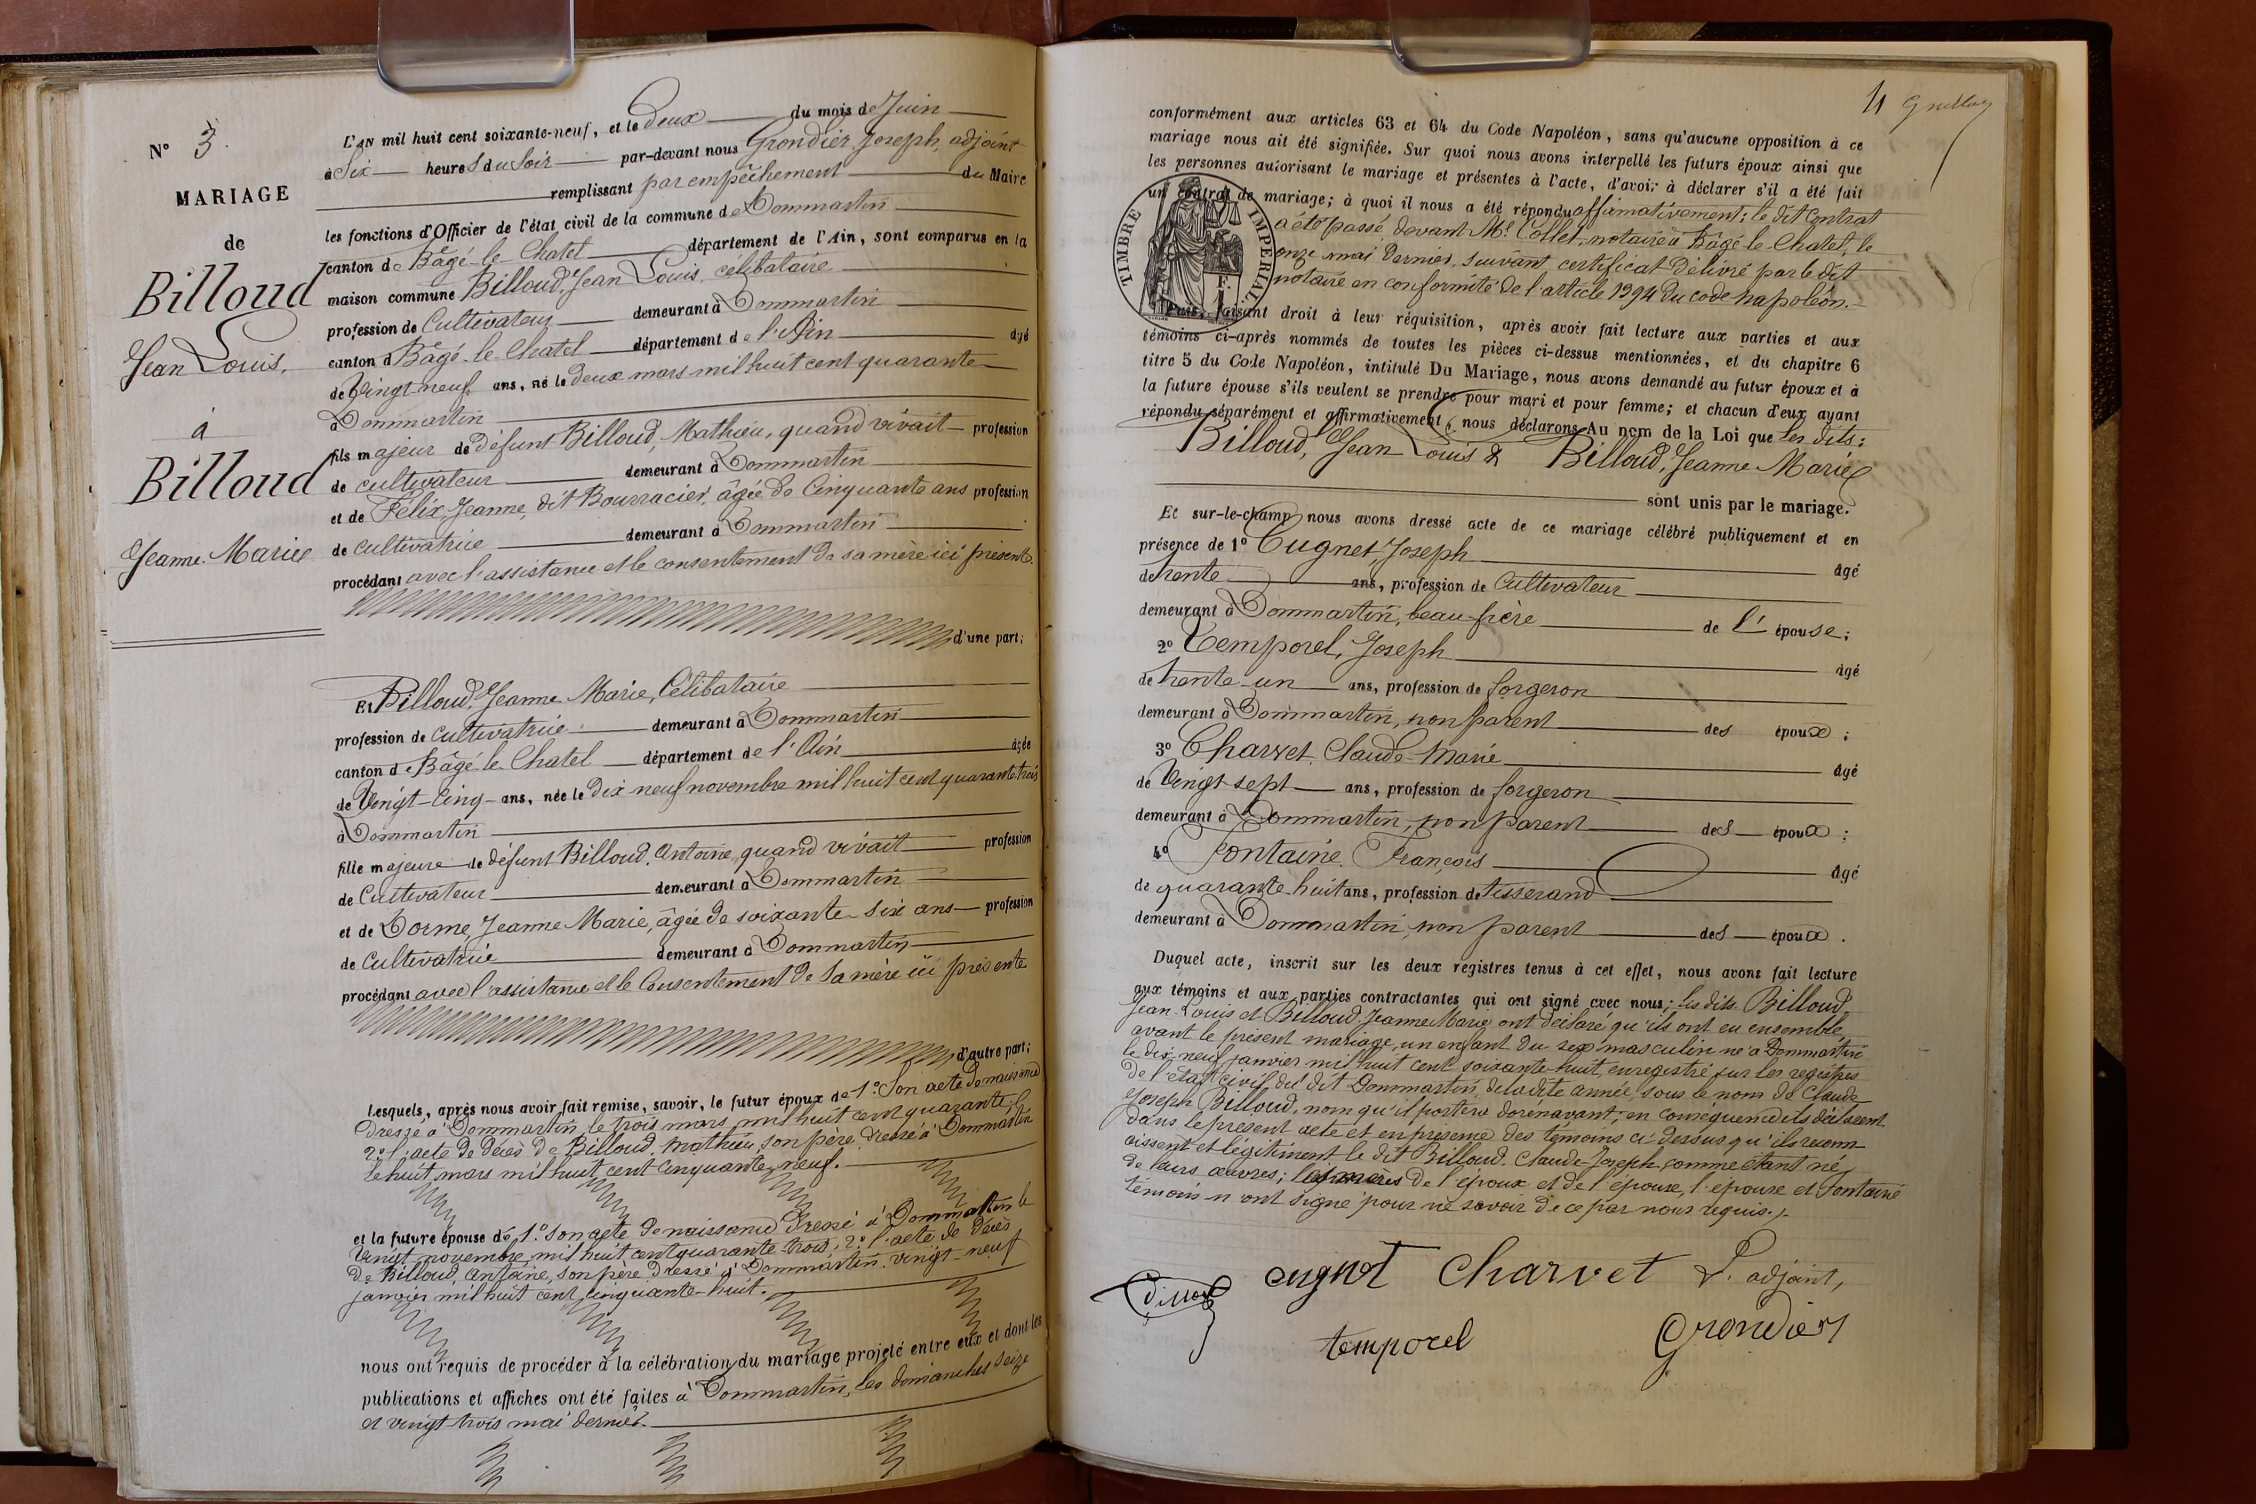 N° 3.
MARIAGE
de
Billoud
Jean Louis,
à
Billoud
Jeanne Marie
L'AN mil huit cent soixante-neuf, et le Deux du mois de Juin
à Six heures du Soir par-devant nous Grondier, Joseph, adjoint
remplissant par empêchement du Maire
les fonctions d'Officier de l'état civil de la commune de Dommartin
canton de Bâgé le Chatel département de l'Ain, sont comparus en la
maison commune Billoud, Jean Louis, célibataire
profession de Cultivateur demeurant à Dommartin
canton d Bâgé-le Chatel département de l'Ain âgé
de Vingt neuf ans, né le deux mars mil huit cent quarante
à Dommartin
fils majeur de défunt Billoud, Mathieu, quand vivait profession
de cultivateur demeurant à Dommartin
et de Félix, Jeanne, dit Bourracier, âgée de Cinquante ans profession
de cultivatrice demeurant à Dommartin
procédant avec l'assistance et le consentement de sa mère ici présente
d'une part;
Et Billoud, Jeanne Marie, Célibataire
profession de cultivatrice demeurant à Dommartin
canton de Bâgé-le Chatel département de l'Ain âgée
de Vingt-Cinq ans, née le dix neuf novembre mil huit cent quarante trois
à Dommartin
fille majeure de défunt Billoud, Antoine, quand vivait profession
de Cultivateur demeurant à Dommartin
et de Dorme, Jeanne Marie, âgée de soixante-six ans profession
de Cultivatrice demeurant à Dommartin
procédant avec l'assistance et le Consentement de Sa mère ici présente
d'autre part;
Lesquels, après nous avoir fait remise, savoir, le futur époux de 1° Son acte de naissance
Dressé à Dommartin, le trois mars mil huit cent quarante;
2° l'acte de décès de Billoud, Mathieu, son père, dressé à Dommartin
le huit mars mil huit cent cinquante-neuf.
et la future épouse de 1° Son acte de naissance Dressé à Dommartin le
Vingt novembre mil huit cent quarante trois; 2° l'acte de Décès
De Billoud, Antoine, son père Dressé à Dommartin, vingt-neuf
janvier mil huit cent cinquante-huit.
nous ont requis de procéder à la célébration du mariage projeté entre eux et dont les
publications et affiches ont été faites à Dommartin, les dimanches seize
et vingt trois mai dernier.
4
conformément aux articles 63 et 64 du Code Napoléon, sans qu'aucune opposition à ce
mariage nous ait été signifiée. Sur quoi nous avons interpellé les futurs époux ainsi que
les personnes autorisant le mariage et présentes à l'acte, d'avoir à déclarer s'il a été fait
un contrat de mariage; à quoi il nous a été répondu affirmativement: le dit Contrat
a été passé devant Me Collet, notaire à Bâgé le Chatel, le
onze mai dernier, suivant certificat délivré par le dit
notaire en conformité de l'article 1394 du code napoléon.
TIMBRE IMPÉRIAL.
Puis, faisant droit à leur réquisition, après avoir fait lecture aux parties et aux
témoins ci-après nommés de toutes les pièces ci-dessus mentionnées, et du chapitre 6
titre 5 du Code Napoléon, intitulé Du Mariage, nous avons demandé au futur époux et à
la future épouse s'ils veulent se prendre pour mari et pour femme; et chacun d'eux ayant
répondu séparément et affirmativement, nous déclarons Au nom de la Loi que les dits:
Billoud, Jean Louis & Billoud, Jeanne Marie
sont unis par le mariage.
Et sur-le-champ nous avons dressé acte de ce mariage célébré publiquement et en
présence de 1° Cugnet, Joseph âgé
de trente ans, profession de Cultivateur
demeurant à Dommartin, beau-frère de l' épouse;
2° Temporel, Joseph âgé
de trente-un ans, profession de forgeron
demeurant à Dommartin, non parent des époux;
3° Charvet, Claude-Marie âgé
de Vingt-sept ans, profession de forgeron
demeurant à Dommartin, non parent des époux;
4° Fontaine, François âgé
de quarante-huit ans, profession de tisserand
demeurant à Dommartin, non parent des époux.
Duquel acte, inscrit sur les deux registres tenus à cet effet, nous avons fait lecture
aux témoins et aux parties contractantes qui ont signé avec nous; les dits Billoud,
Jean-Louis et Billoud Jeanne Marie ont déclaré qu'ils ont eu ensemble,
avant le présent mariage, un enfant du sexe masculin né à Dommartin
le dix-neuf janvier mil huit cent soixante-huit, enregistré sur les registres
de l'état civil du dit Dommartin de la dite année, sous le nom de Claude
Joseph Billoud, nom qu'il portera dorénavant; en conséquence ils déclarent
dans le présent acte et en présence des témoins ci-dessus qu'ils reconn
aissent et légitiment le dit Billoud, Claude-Joseph, comme étant né
de leurs œuvres; les mères de l'époux et de l'épouse, l'épouse et Fontaine
témoin n'ont signé pour ne savoir de ce par nous requis.
cugnet Charvet L'adjoint,
temporel Grondier